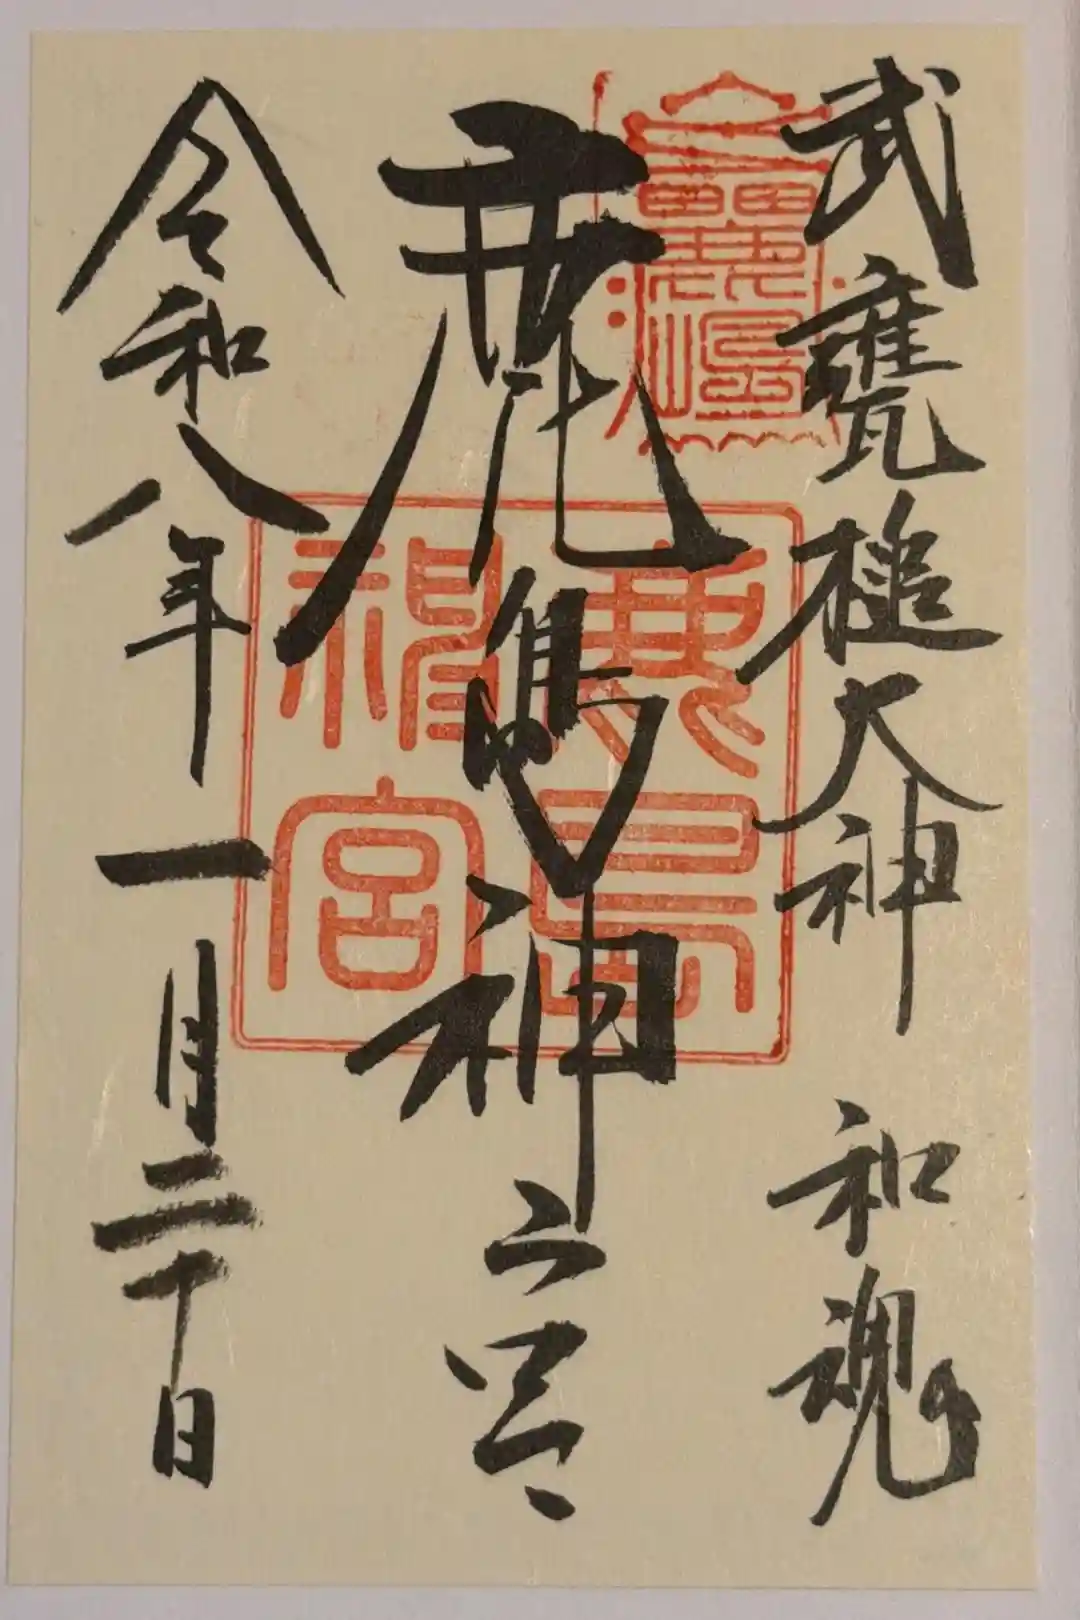 武甕槌大神 和魂
鹿嶋神宮
令和八年一月二十日
鹿島
神宮